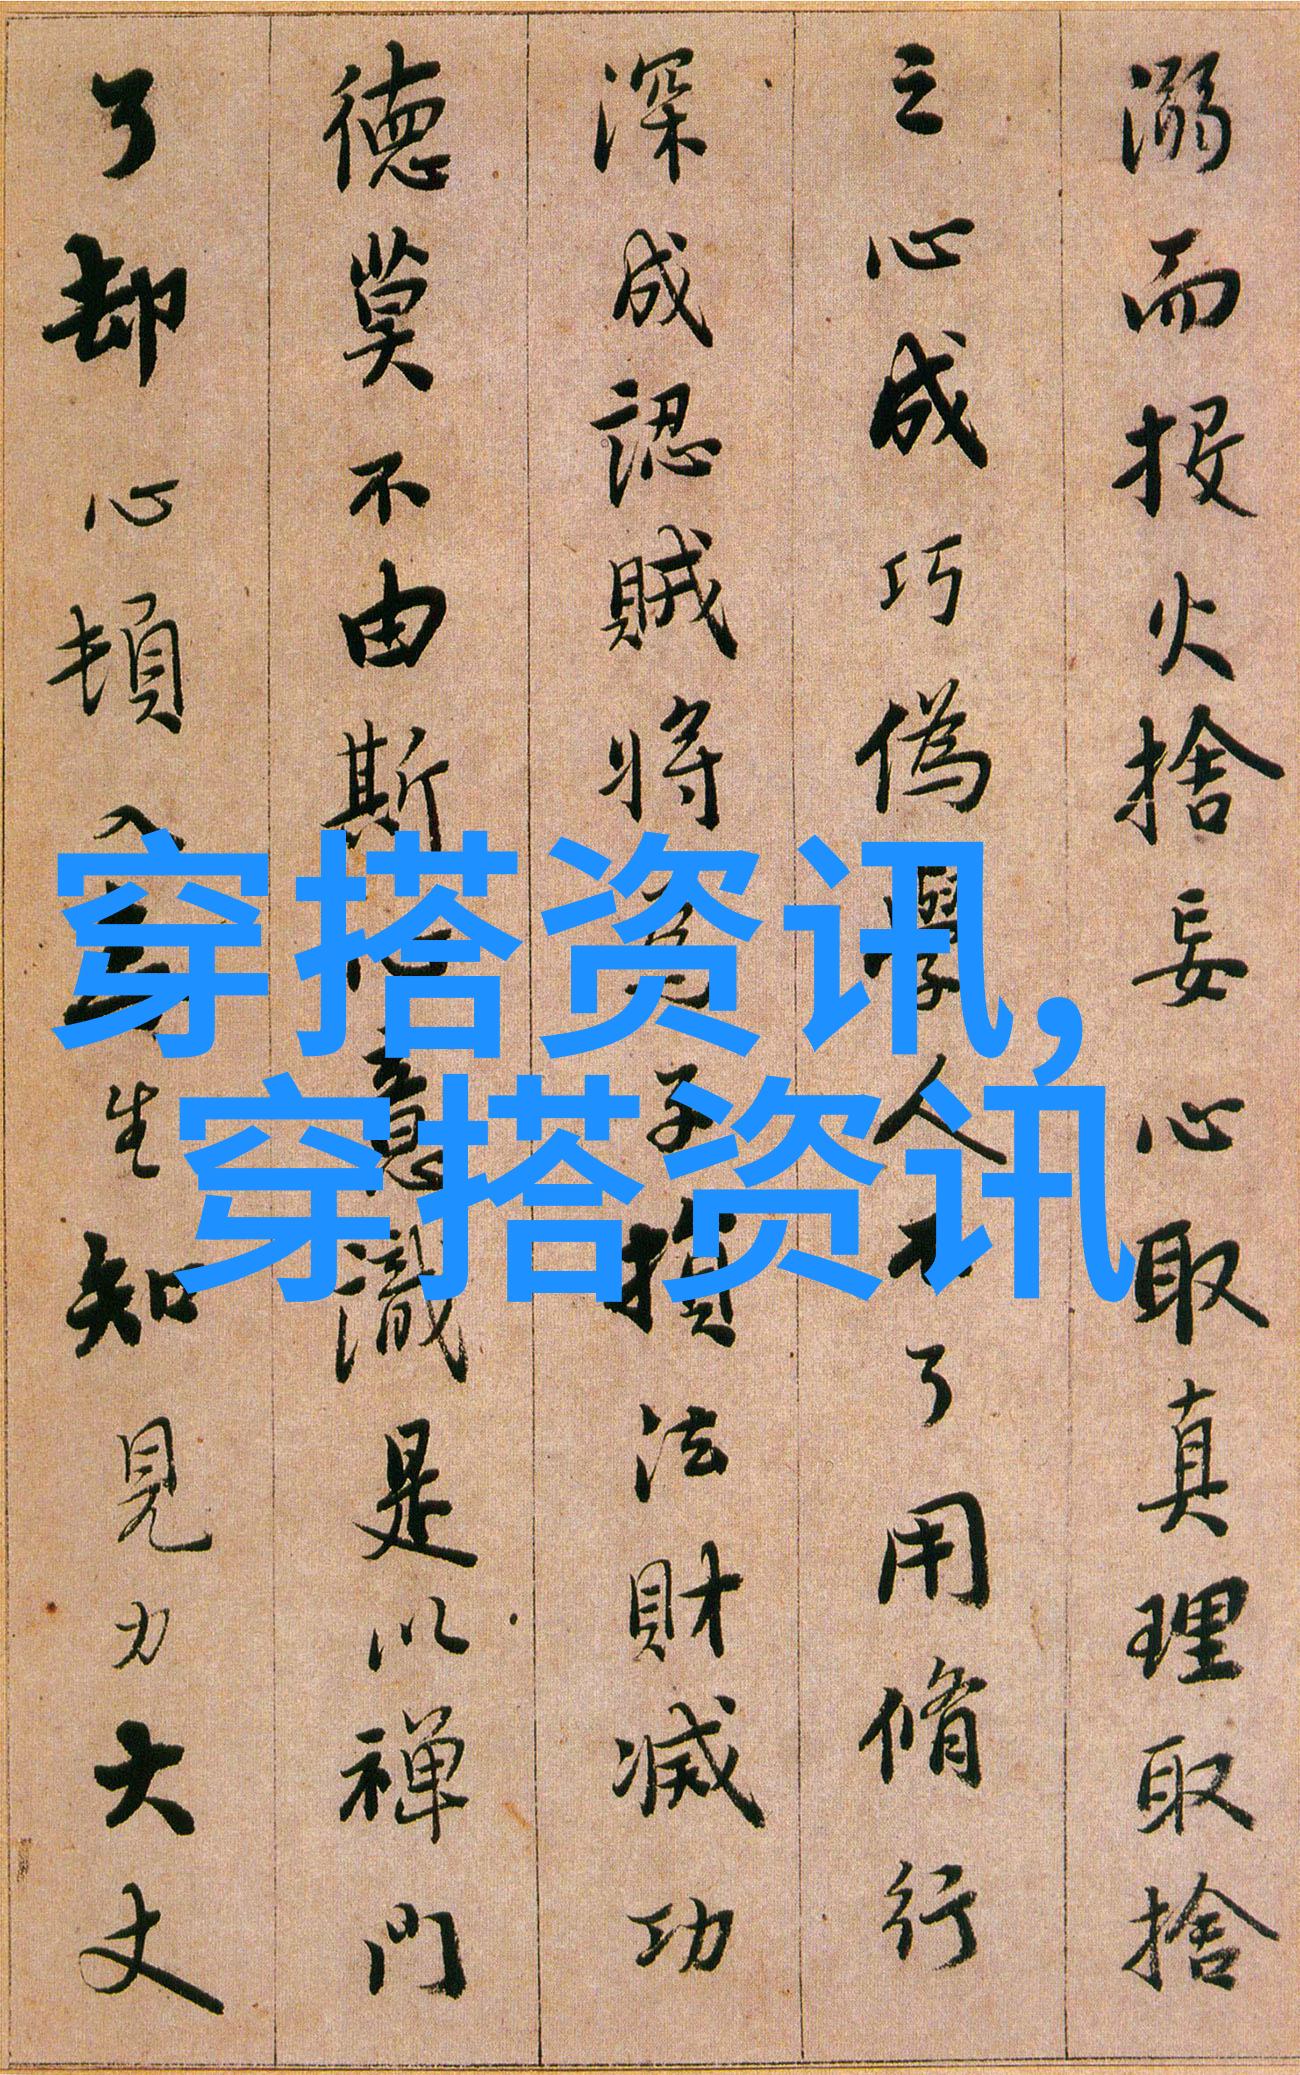 溺而投火捨妄心取真理取捨
之心成巧偽學人不了用脩行
深成認賊將為子損法財滅功
德莫不由斯心意識是以禪門
了却心頓入無生知見力大丈
穿搭资讯,
穿搭资讯